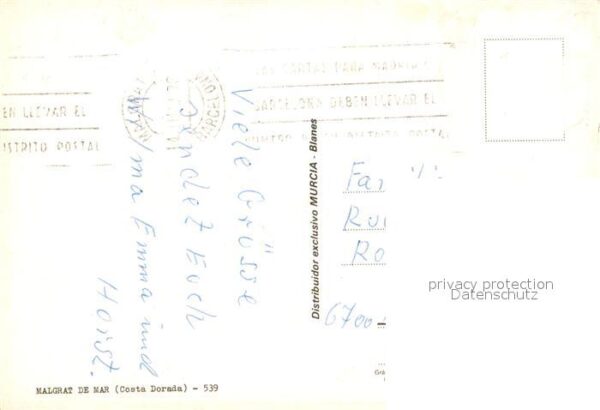 LAS CARTAS PARA MADRID Y
BARCELONA DEBEN LLEVAR EL
DISTRITO POSTAL
EN LLEVAR EL
ISTRITO POSTAL
BARCELONA
Viele Grüsse
sendet Euch
Emma und
Horst.
Distribuidor exclusivo MURCIA - Blanes
Fa
Ru
Ro
6700
privacy protection
Datenschutz
MALGRAT DE MAR (Costa Dorada) - 539